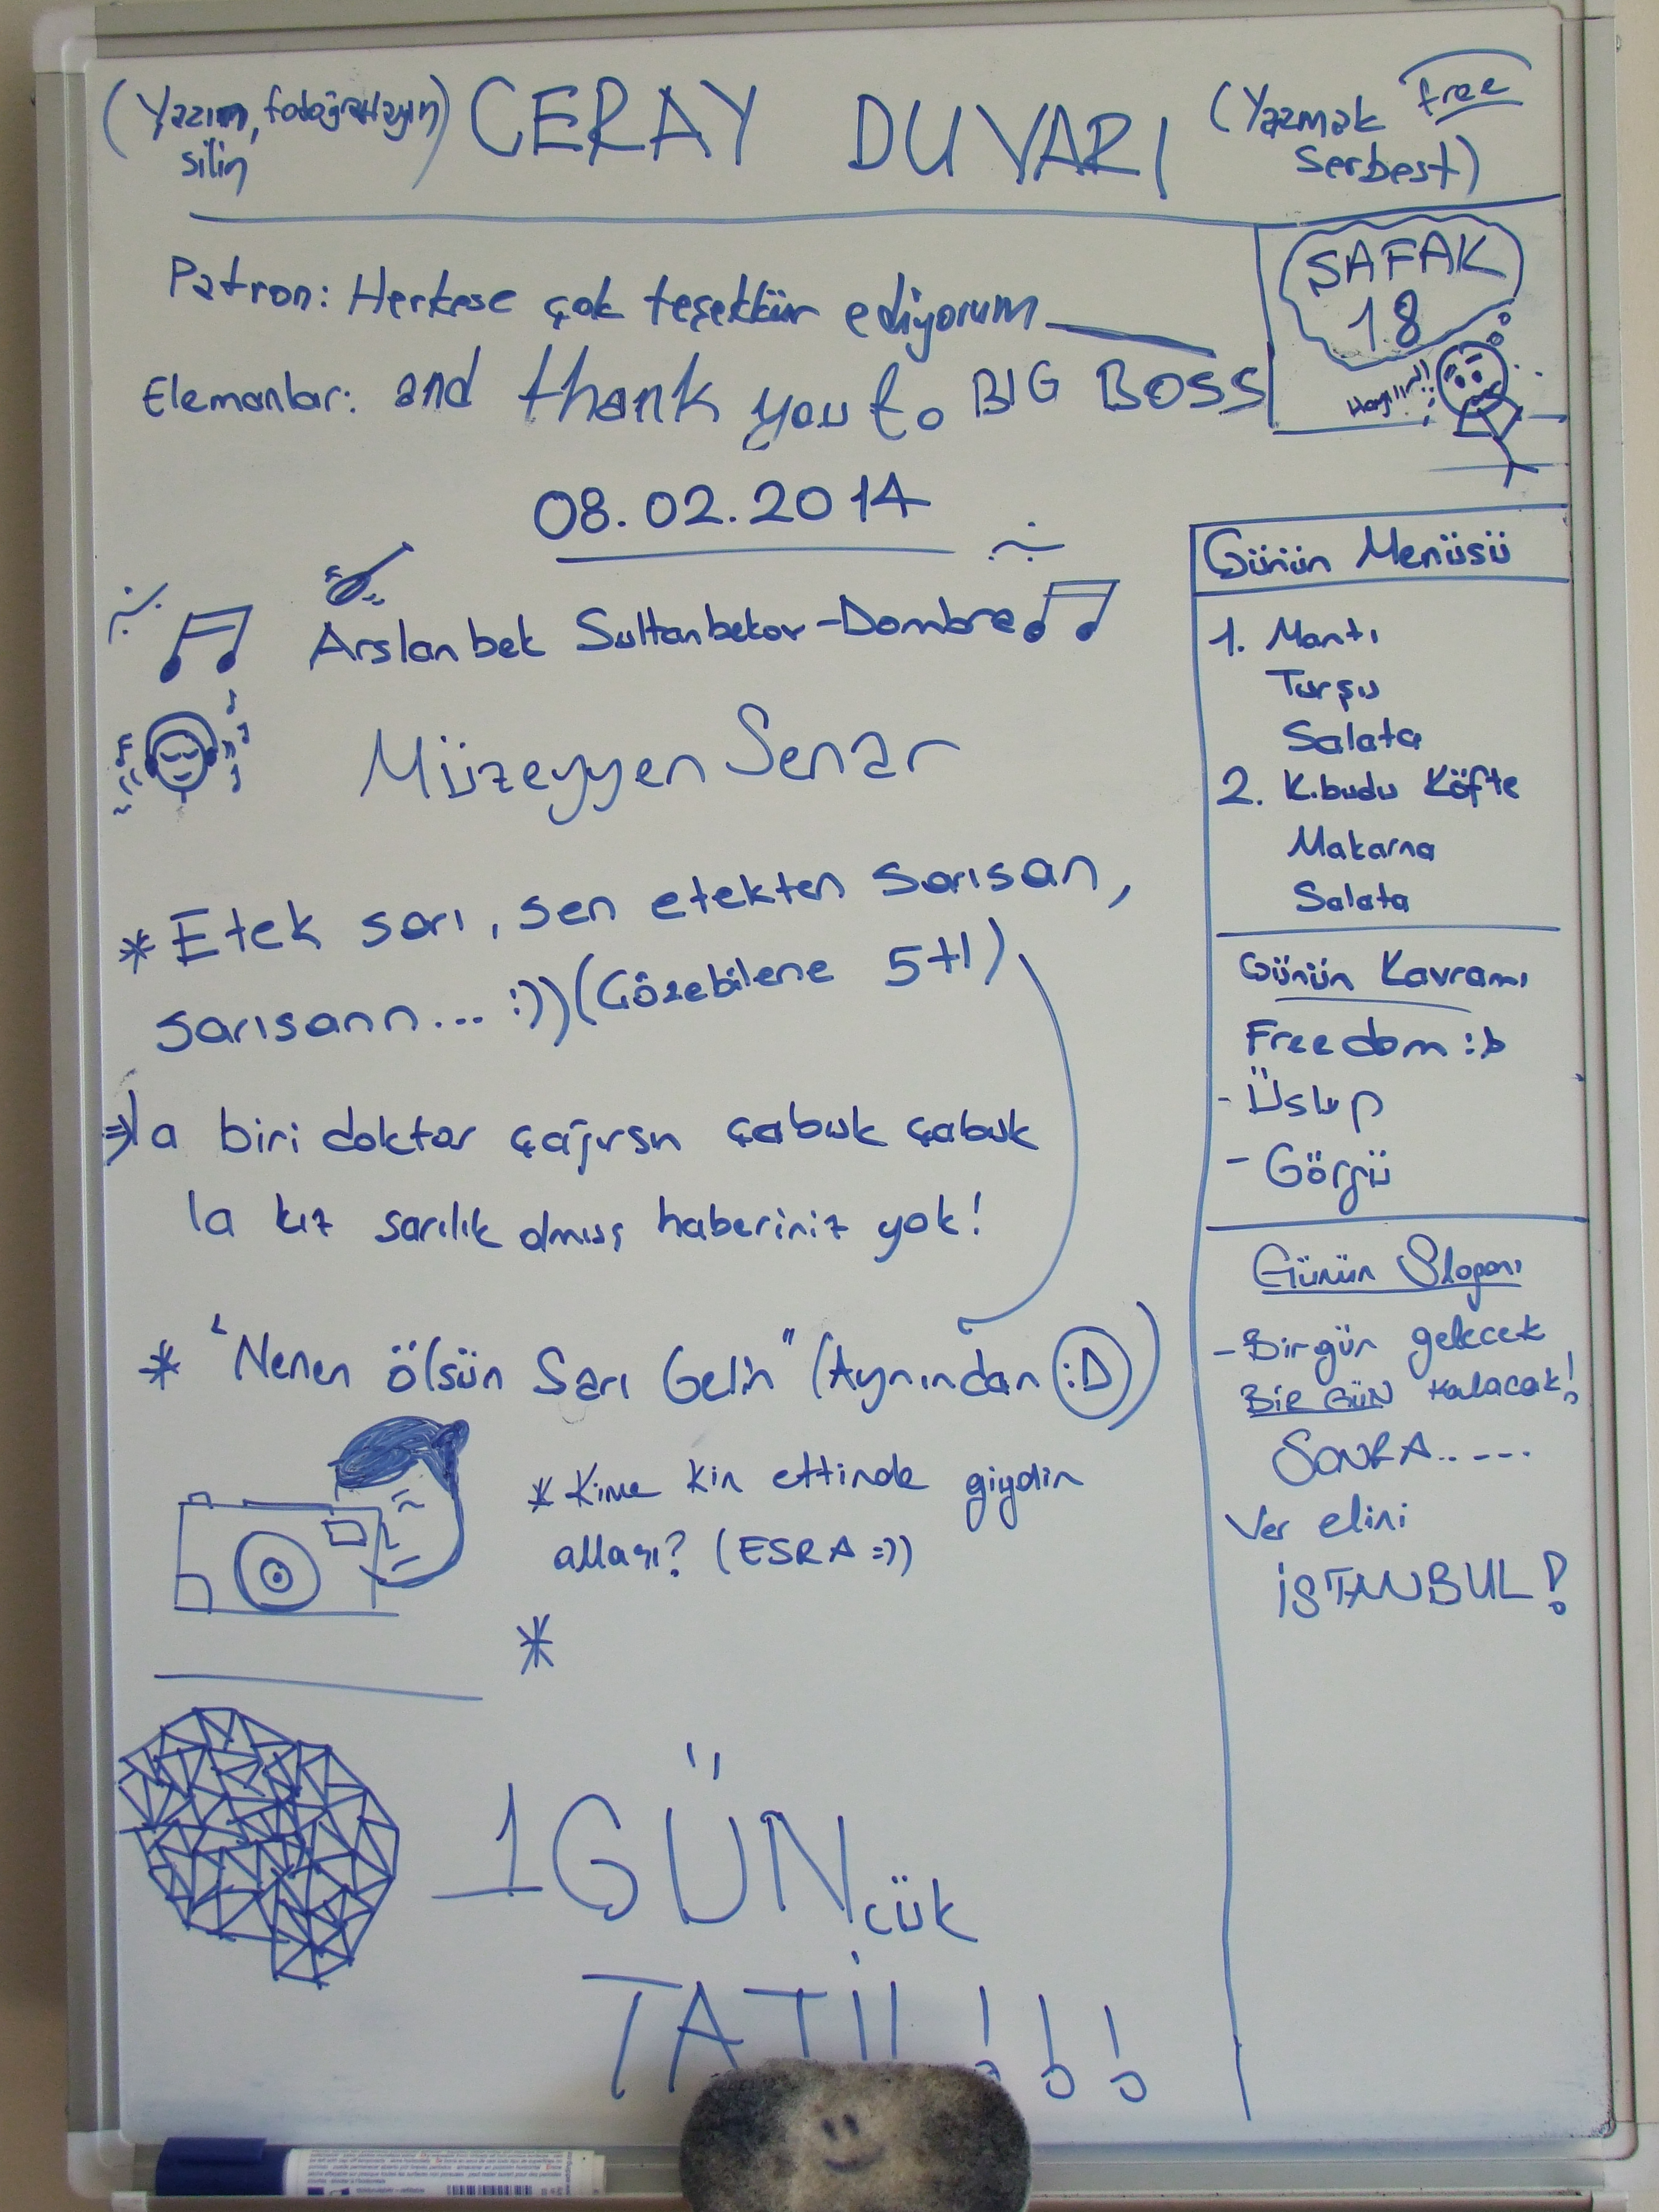 (Yazın, fotoğraflayın, silin) CERAY DUVARI (Yazmak Free Serbest)
ŞAFAK
18
Hayııır!!
Patron: Herkese çok teşekkür ediyorum
Elemanlar: and thank you to BIG BOSS
08.02.2014
Arslanbek Sultanbekov-Dombra
Müzeyyen Senar
* Etek sarı, sen etekten sarısan,
sarısann... :)) (Çözebilene 5+1)
⇒ la biri doktor çağırsın çabuk çabuk
la kız sarılık olmuş haberiniz yok!
* "Nenen ölsün Sarı Gelin" (Aynından :D)
* Kime kin ettinde giydin
alları? (ESRA =))
*
1GÜNcük
TATİL!!!
Günün Menüsü
1. Mantı
Turşu
Salata
2. K.budu Köfte
Makarna
Salata
Günün Kavramı
Freedom :b
- Üslup
- Görgü
Günün Sloganı
- Birgün gelecek
BİR GÜN kalacak!
SONRA.. ---
Ver elini
İSTANBUL!